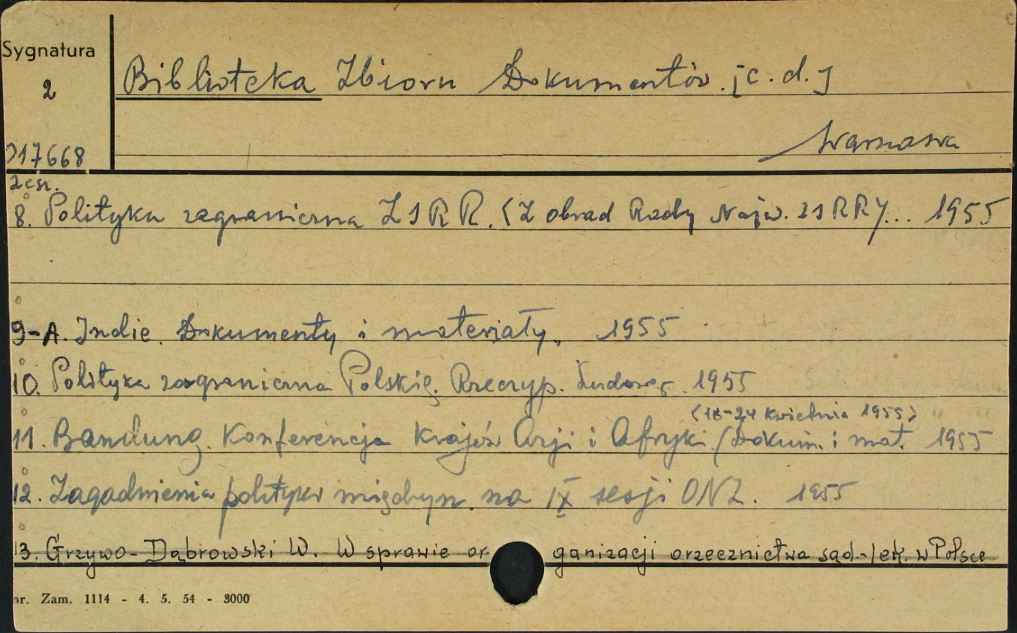 Sygnatura
2
217668
2 csr.
Biblioteka Zbioru Dokumentów. [c.d.]
Warszawa
8. Polityka zagraniczna ZSRR. (Z obrad Rady Najw. ZSRR)... 1955
9-A. Indie. Dokumenty i materiały. 1955
10. Polityka zagraniczna Polskiej Rzeczyp. Ludowej. 1955
(18-24 kwietnia 1955)
11. Bandung. Konferencja krajów Azji i Afryki. (Dokum. i mat. 1955
12. Zagadnienia polityki międzyn. na IX sesji ONZ. 1955
13. Grzywo-Dąbrowski W. W sprawie organizacji orzecznictwa sąd.-lek. w Polsce
nr. Zam. 1114 - 4. 5. 54 - 3000